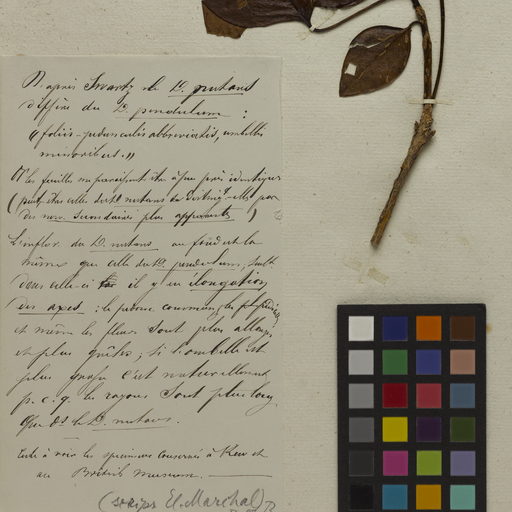 D'après Swartz le D. nutans
diffère du D. pendulum :
"foliis pedunculis abbreviatis, umbellis
minoribus."
les feuilles me paraissent être à peu près identiques
(peut être celles du D. nutans
des nerv. secondaires plus apparents)
L'inflor. du D. nutans au fond est la
même que celle du D. pendulum, seult
dans celle-ci il y a élongation
des axes : le pédonc. commun, les pédicelles
et même les fleurs sont plus allongés
et plus grêles, si l'ombelle est
plus grosse c'est naturellement
p. c. q. les rayons sont plus long
que ds le D. nutans.
à voir les specimens conservés à Kew et
au British Museum.
(scrips. El. Marchal)